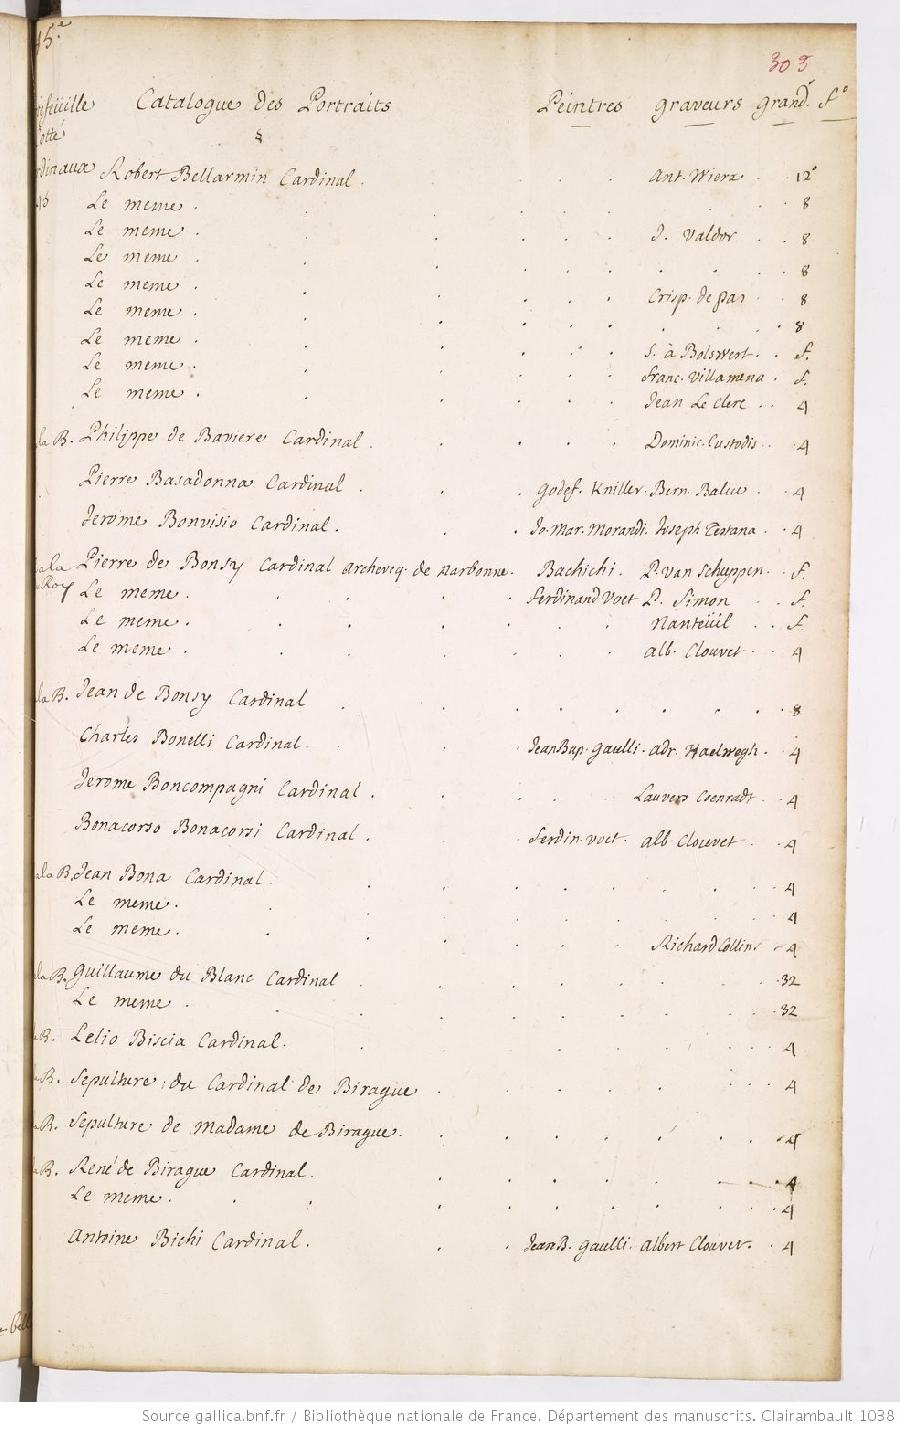 45.e
303
Catalogue des Portraits Peintres graveurs grand.r f.o
Robert Bellarmin Cardinal . Ant. Wierx . 12.
Le meme . 8
Le meme . J. Valdor . 8
Le meme . 8
Le meme . Crisp. de pas . 8
Le meme . 8
Le meme . S. à Bolswert . f.
Le meme . Franc. Villamena . f.
Le meme . Jean Le Clerc . 4
la B. Philippe de Baviere Cardinal . Dominic. Custodis . 4
Pierre Basadonna Cardinal . Godef. Kniller . Bern. Baleu . 4
Jerome Bonvisio Cardinal . Jo. Mar. Morandi . Joseph Testana . 4
a la Pierre de Bonsy Cardinal Archeveq. de Narbonne . Bachichi . P. van Schuppen . f.
Roy Le meme . Ferdinand Voet P. Simon . f.
Le meme . Nanteüil . f.
Le meme . alb. Clouvet . 4
la B. Jean de Bonsy Cardinal . 8
Charles Bonelli Cardinal . Jean Bap. Gaulli . adr. Haelwegh . 4
Jerome Boncompagni Cardinal . 4
Bonacorso Bonacorsi Cardinal . Ferdin. voet . alb. Clouvet . 4
ala B. Jean Bona Cardinal . 4
Le meme . 4
Le meme . Richard Collin . 4
la B. Guillaume du Blanc Cardinal . 32
Le meme . 32
B. Lelio Biscia Cardinal . 4
B. Sepulture du Cardinal de Birague . 4
B. Sepulture de Madame de Birague . 4
B. René de Birague Cardinal . 4
Le meme . 4
Antoine Bichi Cardinal . Jean B. Gaulli . Albert Clouvet . 4
Source gallica.bnf.fr / Bibliothèque nationale de France. Département des manuscrits. Clairambault 1038